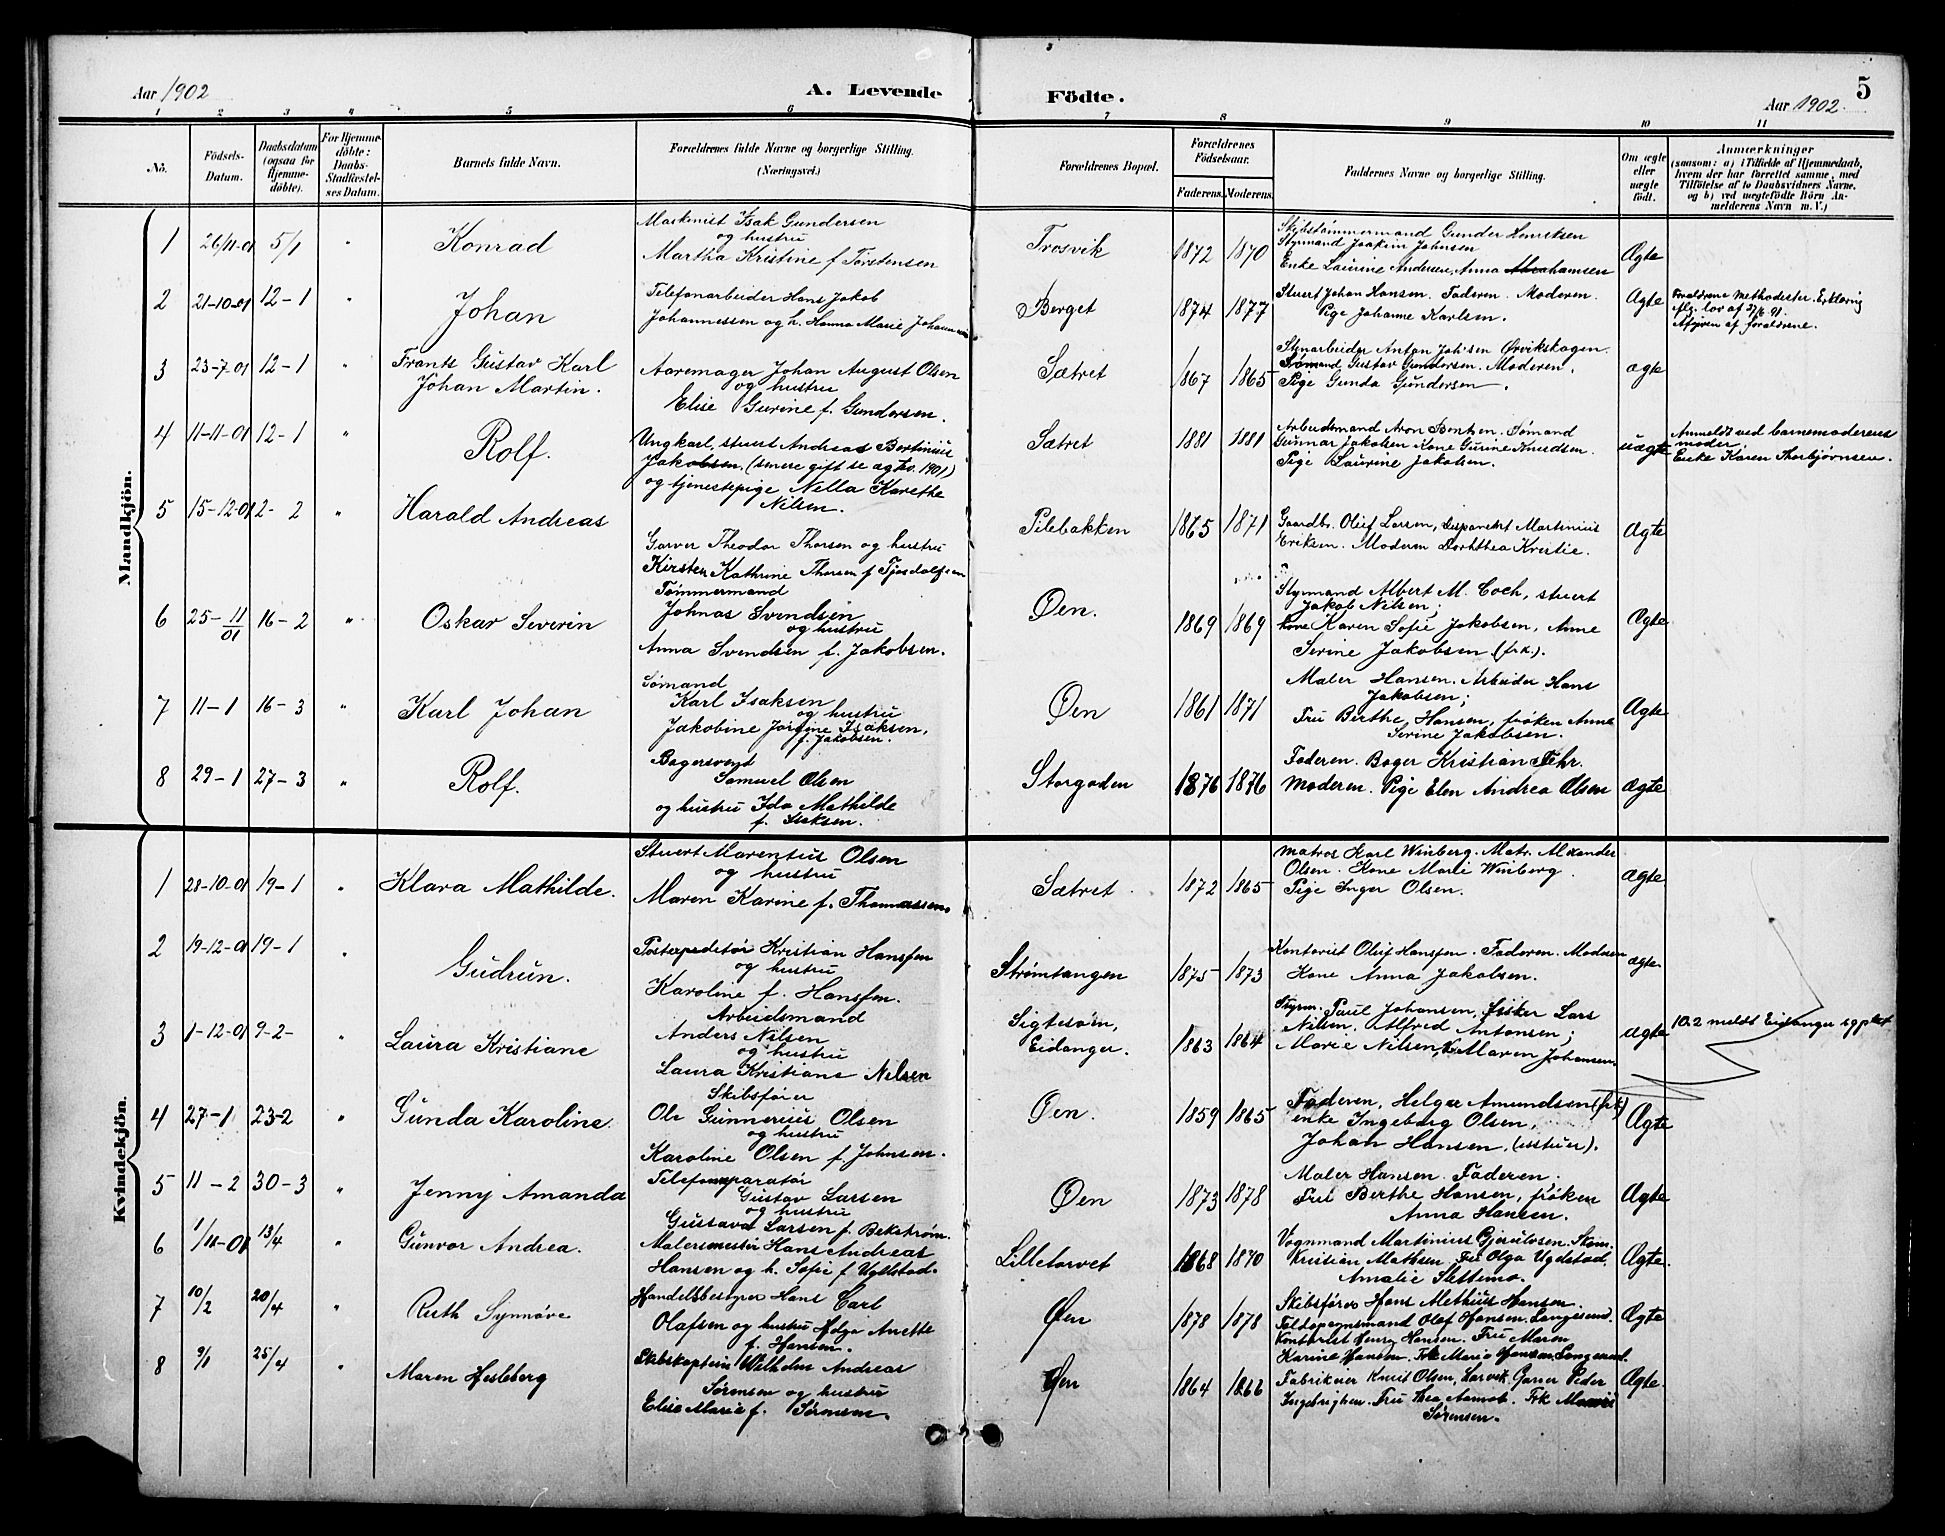 Aar 1902 A. Levende Födte. Aar 1902. 5
1 2 3 4 5 6 7 8 9 10 11
No. Födsels-Datum. Daabsdatum (ogsaa for Hjemmedöbte). For Hjemmedöbte: Daabs-Stadfæstelses Datum. Barnets fulde Navn. Forældrenes fulde Navne og borgerlige Stilling. (Næringsvei.) Forældrenes Bopæl. Forældrenes Födselsaar. Faderens. Moderens. Faddernes Navne og borgerlige Stilling. Om ægte eller uægte födt. Anmærkninger (saasom: a) i Tilfælde af Hjemmedaab, hvem der har forrettet samme, med Tilföielse af to Daabsvidners Navne. og b) ved uægtefödte Börn Anmelderens Navn m. V.)
Mandkjön.
1 26/11-01 5/1 " Konrad
Maskinist Isak Gundersen
og hustru
Martha Kristine f Torstensen
Trosvik 1872 1870
Skibstømmermand Gunder Henriksen
Styrmand Joakim Johnsen
Enke Laurine Andersen, Anna Abrahamsen
Ægte
2 21-10-01 12-1 " Johan
Telefonarbeider Hans Jakob
Johannessen og h. Hanna Marie
Berget 1874 1877
Stuert Johan Hansen. Faderen. Moderen.
Pige Johanne Karlsen.
Ægte
Forældrene Methodister. Erklæring
flg. lov af 27/6 91.
Afgiven af forældrene.
3 23-7-01 12-1 " Frants Gustav Karl
Johan Martin.
Aaremager Johan August Olsen
og hustru
Elise Gurine f. Gundersen.
Sætret 1867 1865
Stenarbeider Anton Joh'sen Ørvikskogen.
Sømand Gustav Gundersen. Moderen.
Pige Gunda Gundersen.
ægte
4 11-11-01 12-1 " Rolf.
Ungkarl, stuert Andreas Bertinius
Jakobsen. (senere gift se ægtev. 1901)
og tjenestepige Nella Karethe
Nilsen.
Sætret 1881 1881
Arbeidsmand Aron Bentsen. Sømand
Gunnar Jakobsen Kone Gurine Knudsen.
Pige Laurine Jakobsen.
uægte
Anmeldt ved barnemoderens
moder,
Enke Karen Thorbjørnsen.
5 15-12-01 2-2 " Harald Andreas
Garver Theodor Thorsen og hustru
Kirsten Kathrine Thorsen f
Pilebakken 1865 1871
Gaardbr. Oluf Larsen, Martinius
Eriksen. Moderen Dorhthea Kristie.
Ægte
6 25-11/01 16-2 " Oskar Severin
Tømmermand
Johnas Svendsen
og hustru
Anna Svendsen f. Jakobsen.
Øen. 1869 1869
Styrmand Albert M. Coch, stuert
Jakob Nilsen;
kone Karen Sofie Jakobsen, Anne
Serine Jakobsen (frk.).
Ægte
7 11-1 16-3 " Karl Johan
Sømand
Karl Isaksen
og hustru
Jakobine Jørgine Isaksen,
f. Jakobsen.
Øen 1861 1871
Maler Hansen. Arbeider Hans
Jakobsen;
Fru Berthe Hansen, frøken Anna
Serine Jakobsen.
Ægte
8 29-1 27-3 " Rolf.
Bagersvend
Samuel Olsen
og hustru Ida Mathilde
f. Isaksen.
Storgaden 1876 1876
Faderen. Bager Kristian Fehr.
Moderen. Pige Elen Andrea Olsen
ægte
Kvindekjön.
1 28-10-01 19-1 " Klara Mathilde.
Stuert Marentius Olsen
og hustru
Maren Karine f. Thomassen.
Sætret 1872 1865
Matros Karl Winberg. Matr. Alexander
Olsen. Kone Marie Winberg.
Pige Inger Olsen.
ægte
2 19-12-01 19-1 " Gudrun.
Postexpeditør Kristian Hanssen
og hustru
Karoline f. Hanssen.
Strømtangen 1875 1873
Kontorist Oluf Hanssen. Faderen. Moderen
Kone Anna Jakobsen.
ægte
3 1-12-01 9-2- " Laura Kristiane
Arbeidsmand
Anders Nilsen
og hustru
Laura Kristiane Nilsen
Sigtesøen,
Eidanger. 1863 1864
Styrm. Paul Johansen, Fisker Lars
Nilsen. Alfred Antonsen;
Marie Nilsen, Maren Johansen.
ægte
10.2 meldt Eidanger
4 27-1 23-2 " Gunda Karoline.
Skibsfører
Ole Gunnerius Olsen
og hustru
Karoline Olsen f. Johnsen.
Øen. 1859 1865
Faderen, Helga Amundsen (frk)
enke Ingeborg Olsen,
Johan Hansen
Ægte
5 11-2 30-3 " Jenny Amanda
Telefonreparatør
Gustav Larsen
og hustru
Gustava Larsen f. Bekstrøm.
Øen 1873 1878
Maler Hansen. Faderen.
Fru Berthe Hansen, frøken
Anna Hansen.
Ægte
6 1/11-01 13/4 " Gunvor Andrea.
Malermester Hans Andreas
Hansen og h. Sofie f Ugelstad.
Lilletorvet 1868 1870
Vognmand Martinius Gjerulvsen.
Kristian Mathsen. Fru Olga Ugelstad.
Amalie
Ægte.
7 10/2 20/4 " Ruth Synnøve
Handelsbestyrer Hans Carl
Olafsen og hustru Helga Anette
f. Hansen.
Øen 1878 1878
Skibsfører Hans Mathius Hansen.
Olaf Hansen Langesund.
Kontorist Henry Hansen. Fru Maren
Karine Hansen. Frk Maria Hansen Langesund.
Ægte
8 9/1 25/4 " Maren Hesleberg
Skibskaptein Wilhelm Andreas
Sørensen og hustru
Elise Marie f. Sørensen.
Øen 1864 1866
Fabrikeier Knut Olsen, Larvik, Garver Peder
Ingebrigtsen. Fru Thea Aamot. Frk
Sørensen.
Ægte.